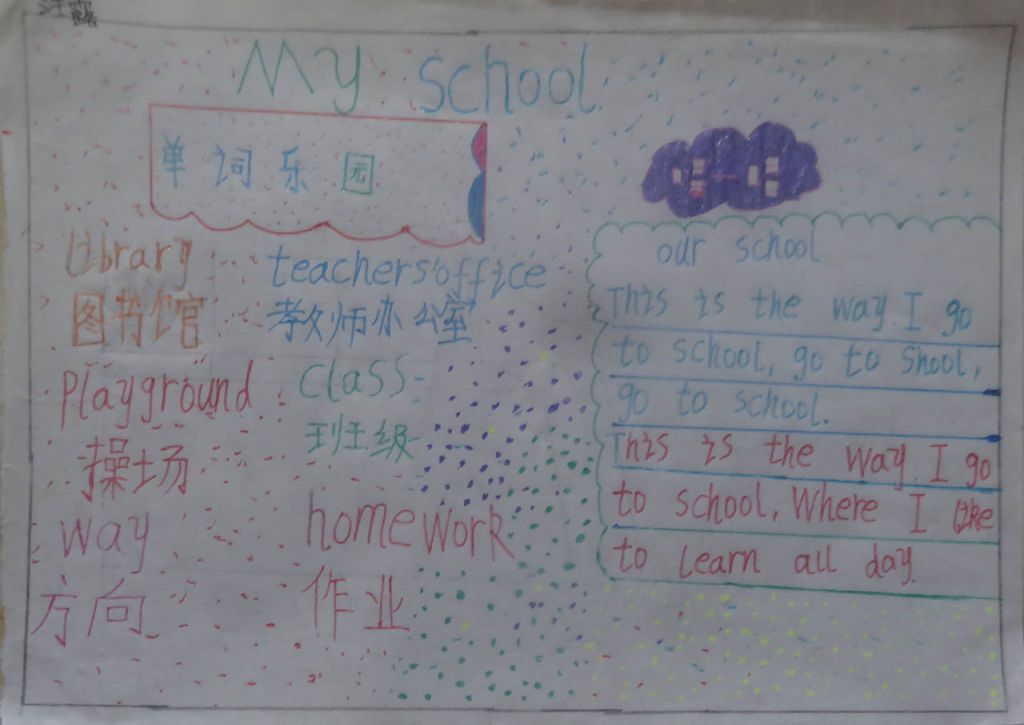 汪露
My school
单词乐园
Library
图书馆
teachers'office
教师办公室
Playground
操场
class
班级
way
方向
homework
作业
our school
This is the way I go
to school, go to shool,
go to school.
This is the way I go
to school, Where I like
to learn all day.